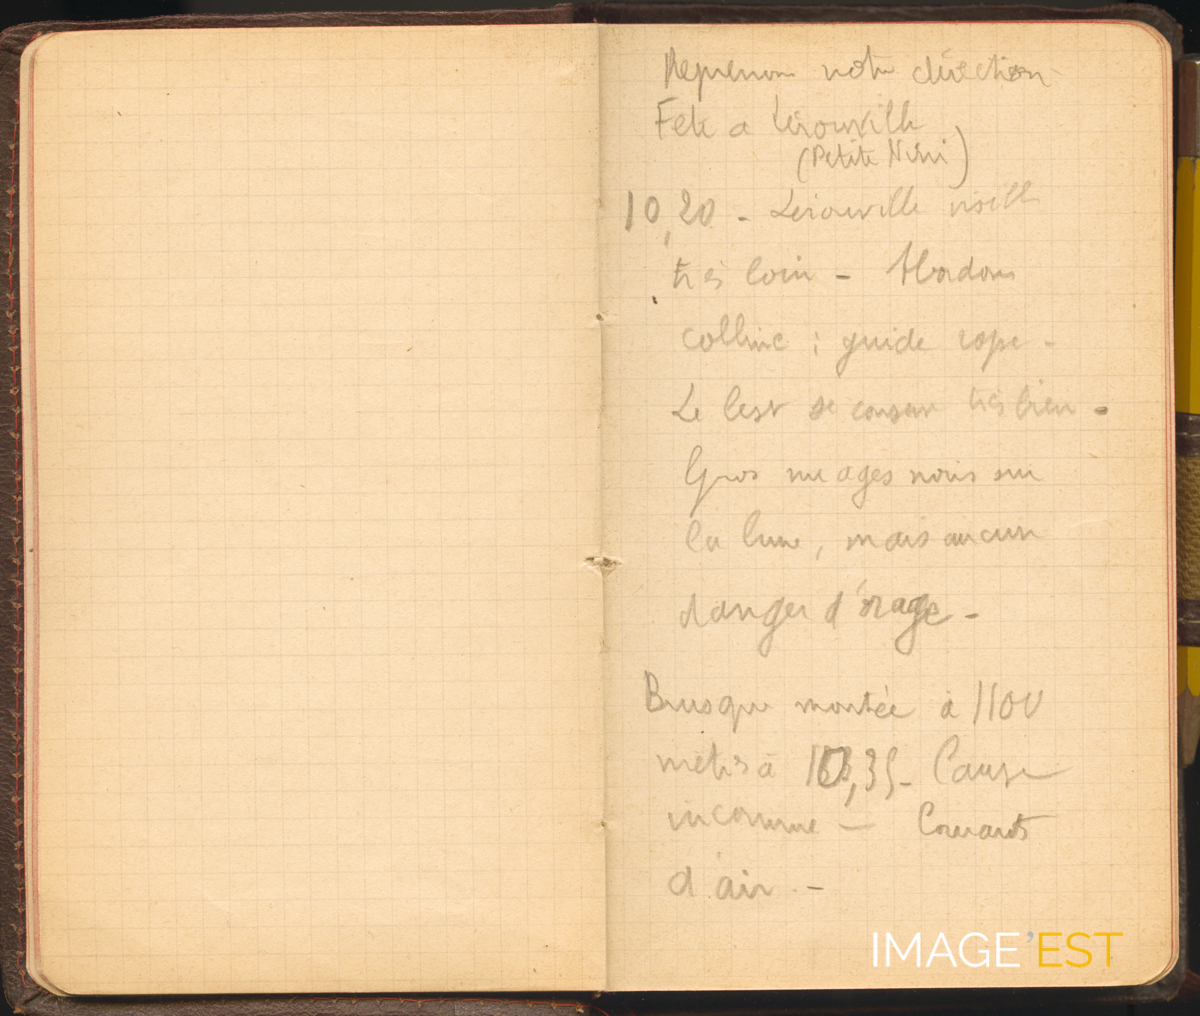 Reprenons notre direction
Fête a Lérouville
(Petite Nini)
10,20 - Lérouville visible
très loin - Abordons
colline : guide rope -
Le lest se conserve très bien -
Gros nuages noirs sur
la lune, mais aucun
danger d'orage -
Brusque montée à 1100
mètres à 10,35 - Cause
inconnue - Courants
d'air -
IMAGE'EST